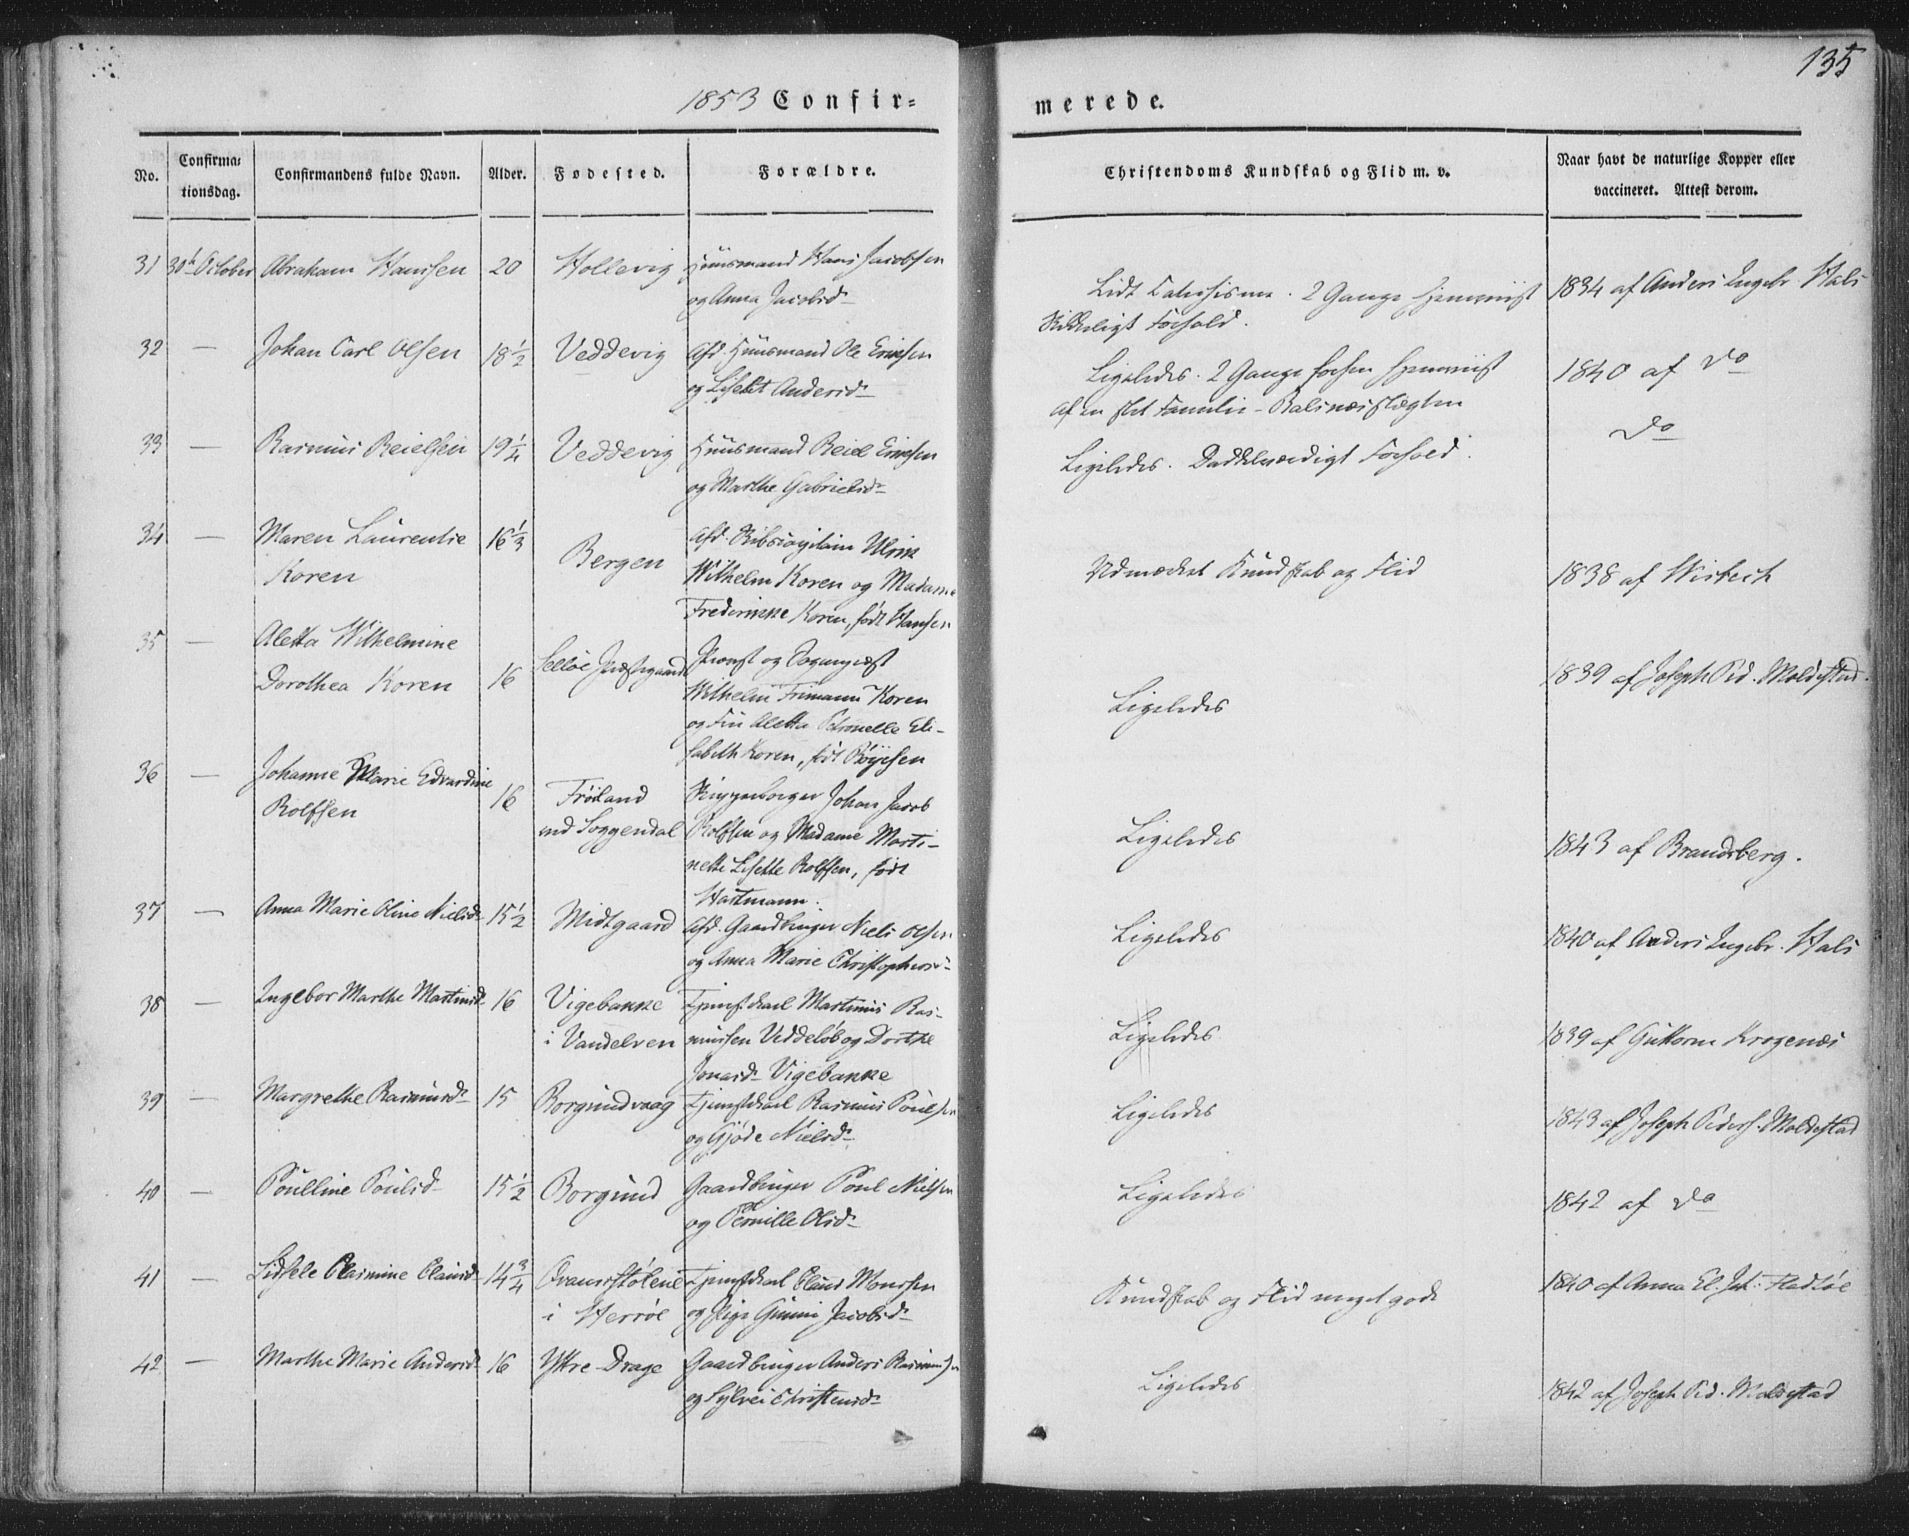 135
1853 Confir-
merede.
No.
Confirma-
tionsdag.
Confirmandens fulde Navn.
Alder.
Fødested.
Forældre.
Christendoms Kundskab og Flid m. v.
Naar havt de naturlige Kopper eller
vaccineret. Attest derom.
31 30te October Abraham Hansen 20 Hollevig Huusmand Hans Jacobsen
og Anna Jacobsd.
Lidt Catechisme. 2 Gange hjemviist
Skikkeligt Forhold.
1834 af Anders Ingebr. Hals
32 — Johan Carl Olsen 18 1/2 Veddevig Afd. Huusmand Ole Ericsen
og Lisebet Andersd.
Ligeledes. 2 Gange forhen hjemviist
af en slet Familie - Balsnæsslægten
1840 af do
33 — Rasmus Reielsen 19 1/4 Veddevig Huusmand Reiel Ericsen
og Marthe Gabrielsd.
Ligeledes. Dadelværdigt Forhold.
do
34 — Maren Laurentie
Koren
16 1/3 Bergen
Afd. Skibscapitain Ulrik
Wilhelm Koren og Madame
Frederikke Koren, født Hansen
Udmærket Kundskab og Flid
1838 af Wisbech
35 — Aletta Wilhelmine
Dorothea Koren
16 Selløe Præstegaard
Provst og Sognepræst
Wilhelm Frimann Koren
og Fru Aletta Petronelle Eli-
sabeth Koren, født Røyesen
Ligeledes
1839 af Joseph Ped. Moldestad.
36 — Johanne Marie Edvardine
Rolfsen
16 Frøiland
ved Soggendal
Skipperborger Johan Jacob
Rolfsen og Madame Marti-
nette Lisette Rolfsen, født
Hartmann.
Ligeledes
1843 af Brandsberg.
37 — Anna Marie Oline Nielsd. 15 1/2 Midtgaard Afd. Gaardbruger Niels Olsen
og Anna Marie Christophersd.
Ligeledes
1840 af Anders Ingebr. Hals
38 — Ingebor Marthe Martinsd. 16 Vigebakke
i Vandelven
Tjenestekarl Martinus Ras-
mussen Veddeløb og Dorthe
Jonasd. Vigebakke
Ligeledes
1839 af Guttorm Krogenæs
39 — Margrethe Rasmusd. 15 Borgundvaag Tjenestekarl Rasmus Poulsen
og Gjøde Nielsd.
Ligeledes
1843 af Joseph Peders. Moldestad
40 — Poulline Poulsd. 15 1/2 Borgund Gaardbruger Poul Nielsen
og Pernille Olsd.
Ligeledes
1842 af do
41 — Lidsele Rasmine Clausd. 14 3/4
i Herrøe
Tjenestekarl Claus Monsen
og Pige Gunni Jacobsd.
Kundskab og Flid meget gode
1840 af Anna El. Fladøe
42 — Marthe Marie Andersd. 16 Yttre Drage Gaardbruger Anders Rasmussen
og Sylvei Christensd.
Ligeledes
1842 af Joseph Ped. Moldestad